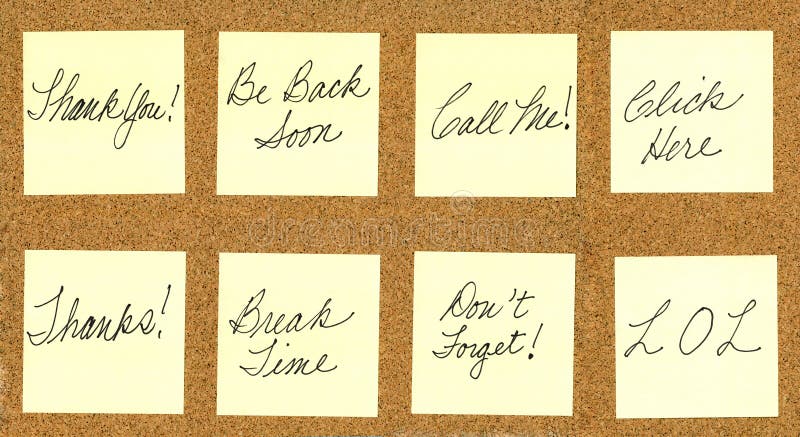 Thank You!
Be Back
Soon
Call Me!
Click
Here
dreamstime
Thanks!
Break
Time
Don't
Forget!
L O L